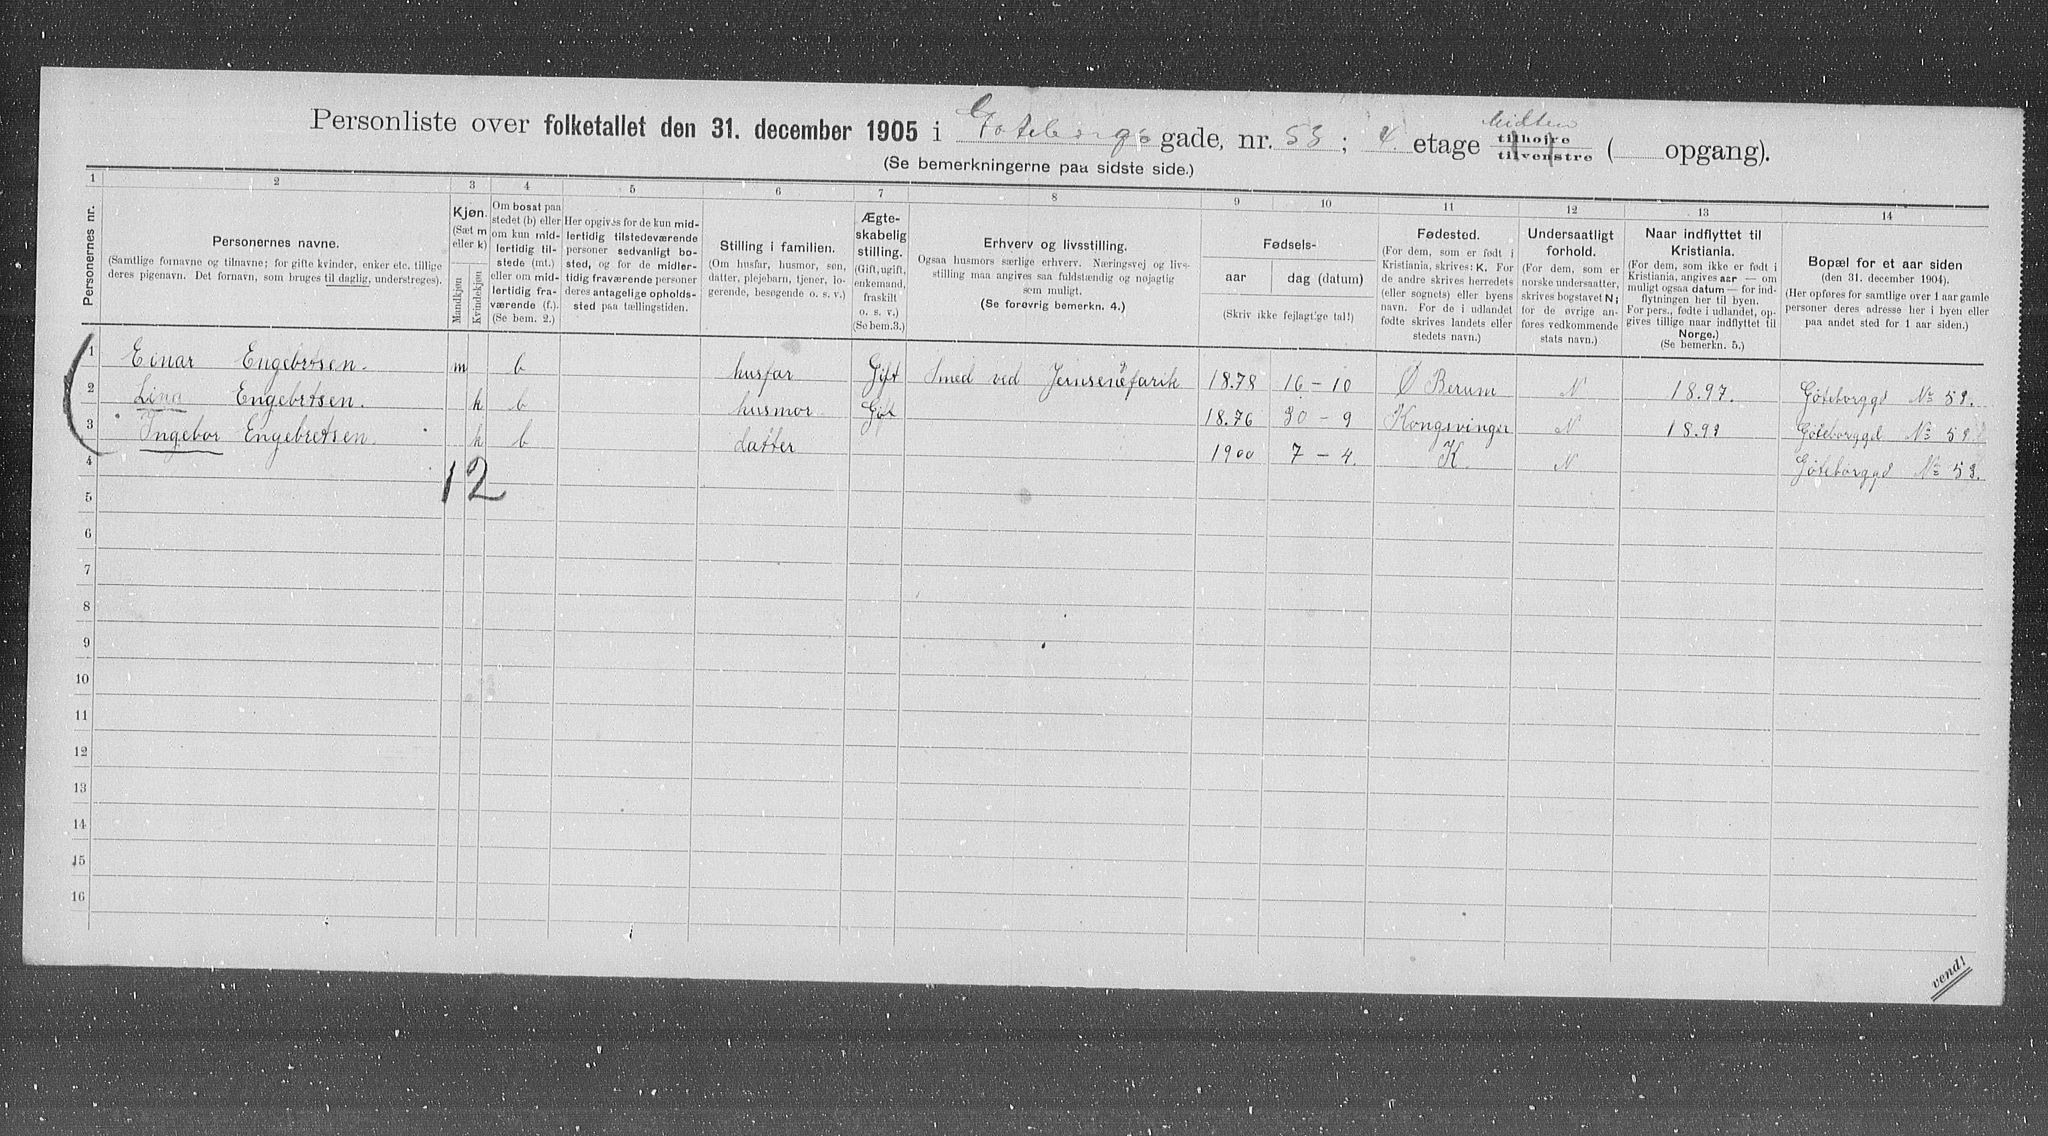 Personliste over folketallet den 31. december 1905 i Gøteborgs gade, nr. 53; 4. etage Midten tilhøire tilvenstre ( opgang).
(Se bemerkningerne paa sidste side.)
1 2 3 4 5 6 7 8 9 10 11 12 13 14
Personernes nr.
Personernes navne.
(Samtlige fornavne og tilnavne; for gifte kvinder, enker etc. tillige
deres pigenavn. Det fornavn, som bruges til daglig, understreges).
Kjøn.
(Sæt m
eller k)
Mandkjøn
Kvindekjøn
Om bosat paa
stedet (b) eller
om kun mid-
lertidig til-
stede (mt.)
eller om mid-
lertidig fra-
værende (f.).
(Se bem. 2.)
Her opgives for de kun mid-
lertidig tilstedeværende
personer sedvanligt bo-
sted, og for de midler-
tidig fraværende personer
deres antagelige opholds-
sted paa tællingstiden.
Stilling i familien.
(Om husfar, husmor, søn,
datter, plejebarn, tjener, lo-
gerende, besøgende o. s. v.)
Ægte-
skabelig
stilling.
(Gift, ugift,
enkemand,
fraskilt
o. s. v.)
(Se bem. 3.)
Erhverv og livsstilling.
Ogsaa husmors særlige erhverv. Næringsvej og liv-
stilling maa angives saa fuldstændig og nøjagtig
som muligt.
(Se forøvrig bemerkn. 4.)
Fødsels-
aar
dag (datum)
(Skriv ikke fejlagtige tal!)
Fødested.
(For dem, som er født i
Kristiania, skrives: K. For
de andre skrives herredets
(eller sognets) eller byens
navn. For de i udlandet
fødte skrives landets eller
stedets navn.)
Undersaatligt
forhold.
(For dem, som er
norske undersaatter,
skrives bogstavet N;
for de øvrige an-
føres vedkommende
stats navn.)
Naar indflyttet til
Kristiania.
(For dem, som ikke er født i
Kristiania, angives aar — om
muligt ogsaa datum — for ind-
flytningen her til byen.
For pers., fødte i udlandet, op-
gives tillige naar indflyttet til
Norge.)
(Se bemerkn. 5.)
Bopæl for et aar siden
(den 31. december 1904).
(Her opføres for samtlige over 1 aar gamle
personer deres adresse her i byen eller
paa andet sted for 1 aar siden.)
1 Einar Engebretsen. m b husfar Gift Smed ved Jernsenefarik 18.78 16 – 10 Ø Berum N 18.97. Göteborggd No 53.
2 Lina Engebretsen. k b husmor Gift 18.76 30 – 9 Kongsvinger N Göteborggd No 53
3 Ingebor Engebretsen. k b datter 1900 7 – 4. K. N Göteborggd No 53.
4
12
5
6
7
8
9
10
11
12
13
14
15
16
vend!